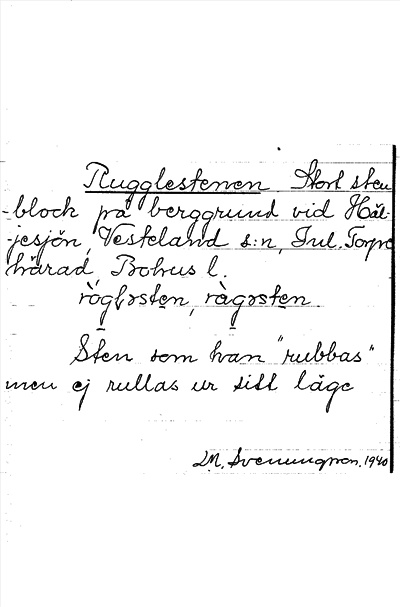 Rugglestenen Stort sten
-block på berggrund vid Häl-
-jesjön, Vesteland s:n, Inl. Torpe
härad, Bohus l.
Sten som kan "rubbas"
men ej rullas ur sitt läge
M. Svenungsson. 1940